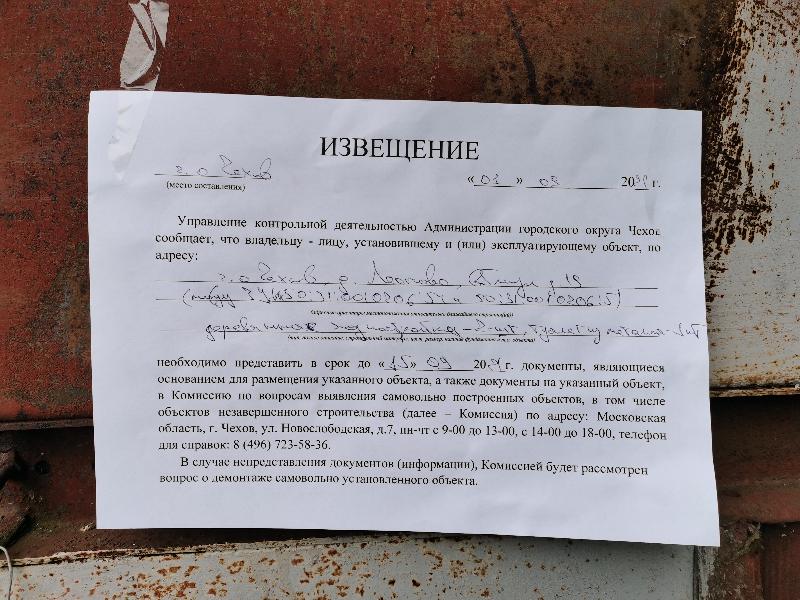 ИЗВЕЩЕНИЕ
г.о Чехов « 01 » 09 20 г.
(место составления)
Управление контрольной деятельностью Администрации городского округа Чехов
сообщает, что владельцу - лицу, установившему и (или) эксплуатирующему объект, по
адресу:
г.о Чехов д. д 19
(между ЗУ
хоз постройка - 2-шт, туалет из металла - 1шт
необходимо представить в срок до « 15 » 09 20 г. документы, являющиеся
основанием для размещения указанного объекта, а также документы на указанный объект,
в Комиссию по вопросам выявления самовольно построенных объектов, в том числе
объектов незавершенного строительства (далее – Комиссия) по адресу: Московская
область, г. Чехов, ул. Новослободская, д.7, пн-чт с 9-00 до 13-00, с 14-00 до 18-00, телефон
для справок: 8 (496) 723-58-36.
В случае непредставления документов (информации), Комиссией будет рассмотрен
вопрос о демонтаже самовольно установленного объекта.